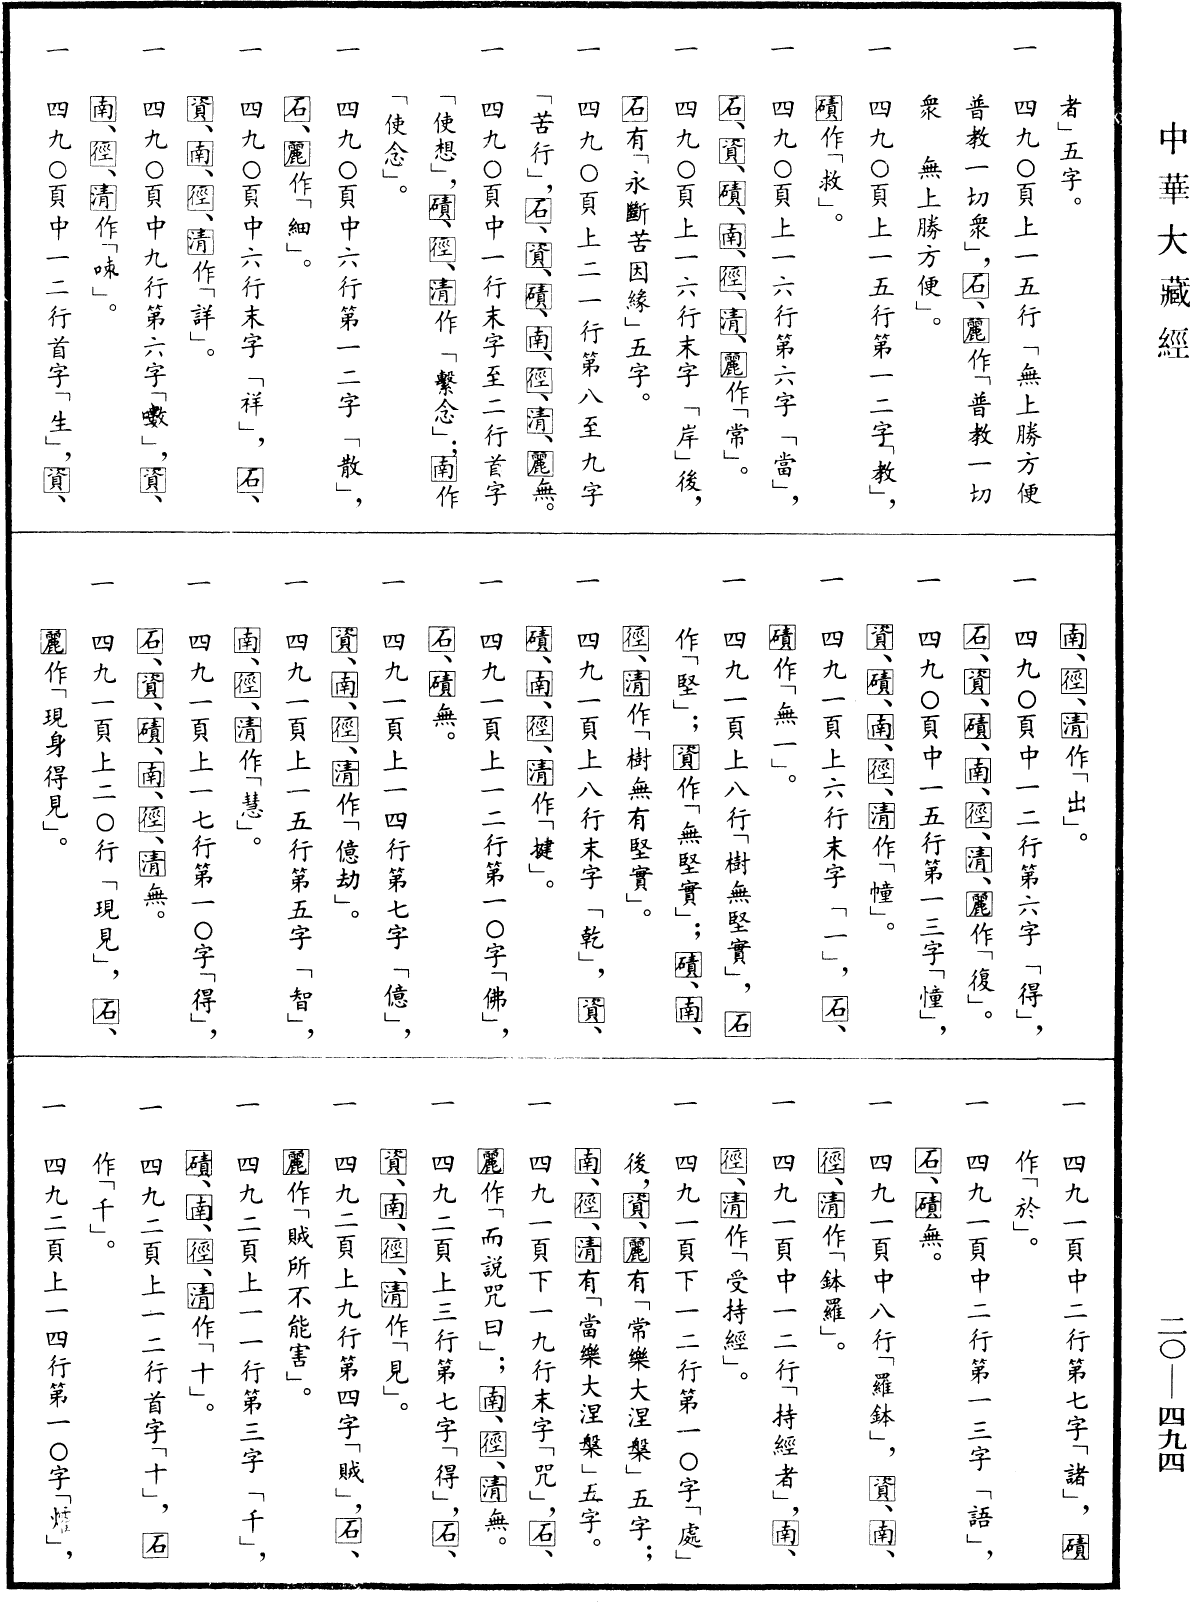 中華大藏經
二〇—四九四
者」五字。
一　四九〇頁上一五行「無上勝方便
普教一切衆」，石、麗作「普教一切
衆　無上勝方便」。
一　四九〇頁上一五行第一二字「教」，
磧作「救」。
一　四九〇頁上一六行第六字「當」，
石、資、磧、南、徑、清、麗作「常」。
一　四九〇頁上一六行末字「岸」後，
石有「永斷苦因緣」五字。
一　四九〇頁上二一行第八至九字
「苦行」，石、資、磧、南、徑、清、麗無。
一　四九〇頁中一行末字至二行首字
「使想」，磧、徑、清作「繫念」；南作
「使念」。
一　四九〇頁中六行第一二字「散」，
石、麗作「細」。
一　四九〇頁中六行末字「祥」，石、
資、南、徑、清作「詳」。
一　四九〇頁中九行第六字「㘔」，資、
南、徑、清作「㖨」。
一　四九〇頁中一二行首字「生」，資、
南、徑、清作「出」。
一　四九〇頁中一二行第六字「得」，
石、資、磧、南、徑、清、麗作「復」。
一　四九〇頁中一五行第一三字「憧」，
資、磧、南、徑、清作「幢」。
一　四九一頁上六行末字「一」，石、
磧作「無一」。
一　四九一頁上八行「樹無堅實」，石
作「堅」；資作「無堅實」；磧、南、
徑、清作「樹無有堅實」。
一　四九一頁上八行末字「乾」，資、
磧、南、徑、清作「揵」。
一　四九一頁上一二行第一〇字「佛」，
石、磧無。
一　四九一頁上一四行第七字「億」，
資、南、徑、清作「億劫」。
一　四九一頁上一五行第五字「智」，
南、徑、清作「慧」。
一　四九一頁上一七行第一〇字「得」，
石、資、磧、南、徑、清無。
一　四九一頁上二〇行「現見」，石、
麗作「現身得見」。
一　四九一頁中二行第七字「諸」，磧
作「於」。
一　四九一頁中二行第一三字「語」，
石、磧無。
一　四九一頁中八行「羅鉢」，資、南、
徑、清作「鉢羅」。
一　四九一頁中一二行「持經者」，南、
徑、清作「受持經」。
一　四九一頁下一二行第一〇字「處」
後，資、麗有「常樂大涅槃」五字；
南、徑、清有「當樂大涅槃」五字。
一　四九一頁下一九行末字「咒」，石、
麗作「而説咒曰」；南、徑、清無。
一　四九二頁上三行第七字「得」，石、
資、南、徑、清作「見」。
一　四九二頁上九行第四字「賊」，石、
麗作「賊所不能害」。
一　四九二頁上一一行第三字「千」，
磧、南、徑、清作「十」。
一　四九二頁上一二行首字「十」，石
作「千」。
一　四九二頁上一四行第一〇字「」，